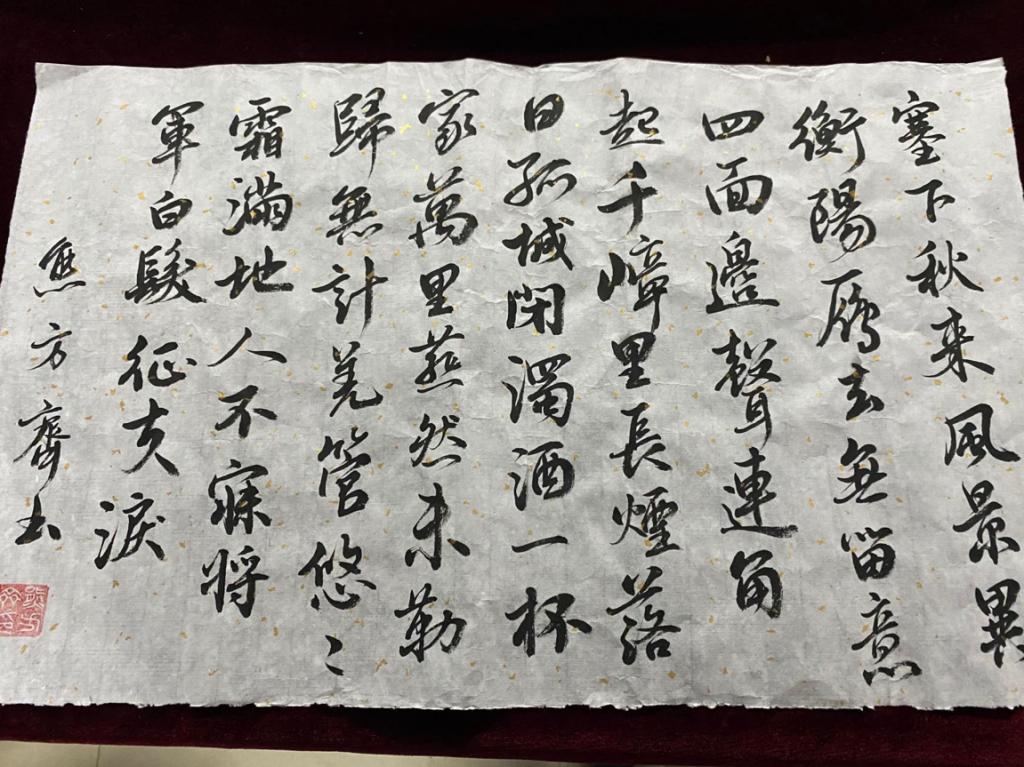 塞下秋来風景異
衡陽雁去無留意
四面邊聲連角
起千嶂里長煙落
日孤城閉濁酒一杯
家萬里燕然未勒
歸無計羌管悠〻
霜滿地人不寐将
軍白髮征夫淚
焦方齊书